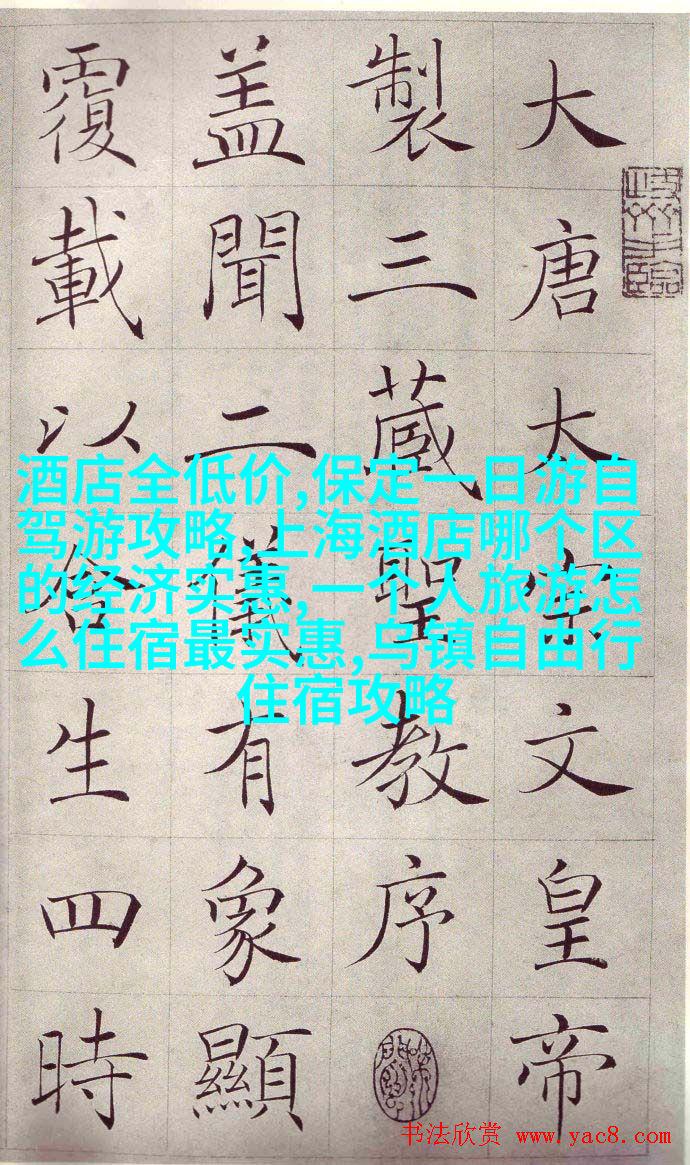 大唐太宗文皇帝
製三藏聖教序
盖聞二儀有象顯
覆載以含生四時
酒店全低价,保定一日游自
驾游攻略,上海酒店哪个区
的经济实惠,一个人旅游怎
么住宿最实惠,乌镇自由行
住宿攻略
书法欣赏 www.yac8.com